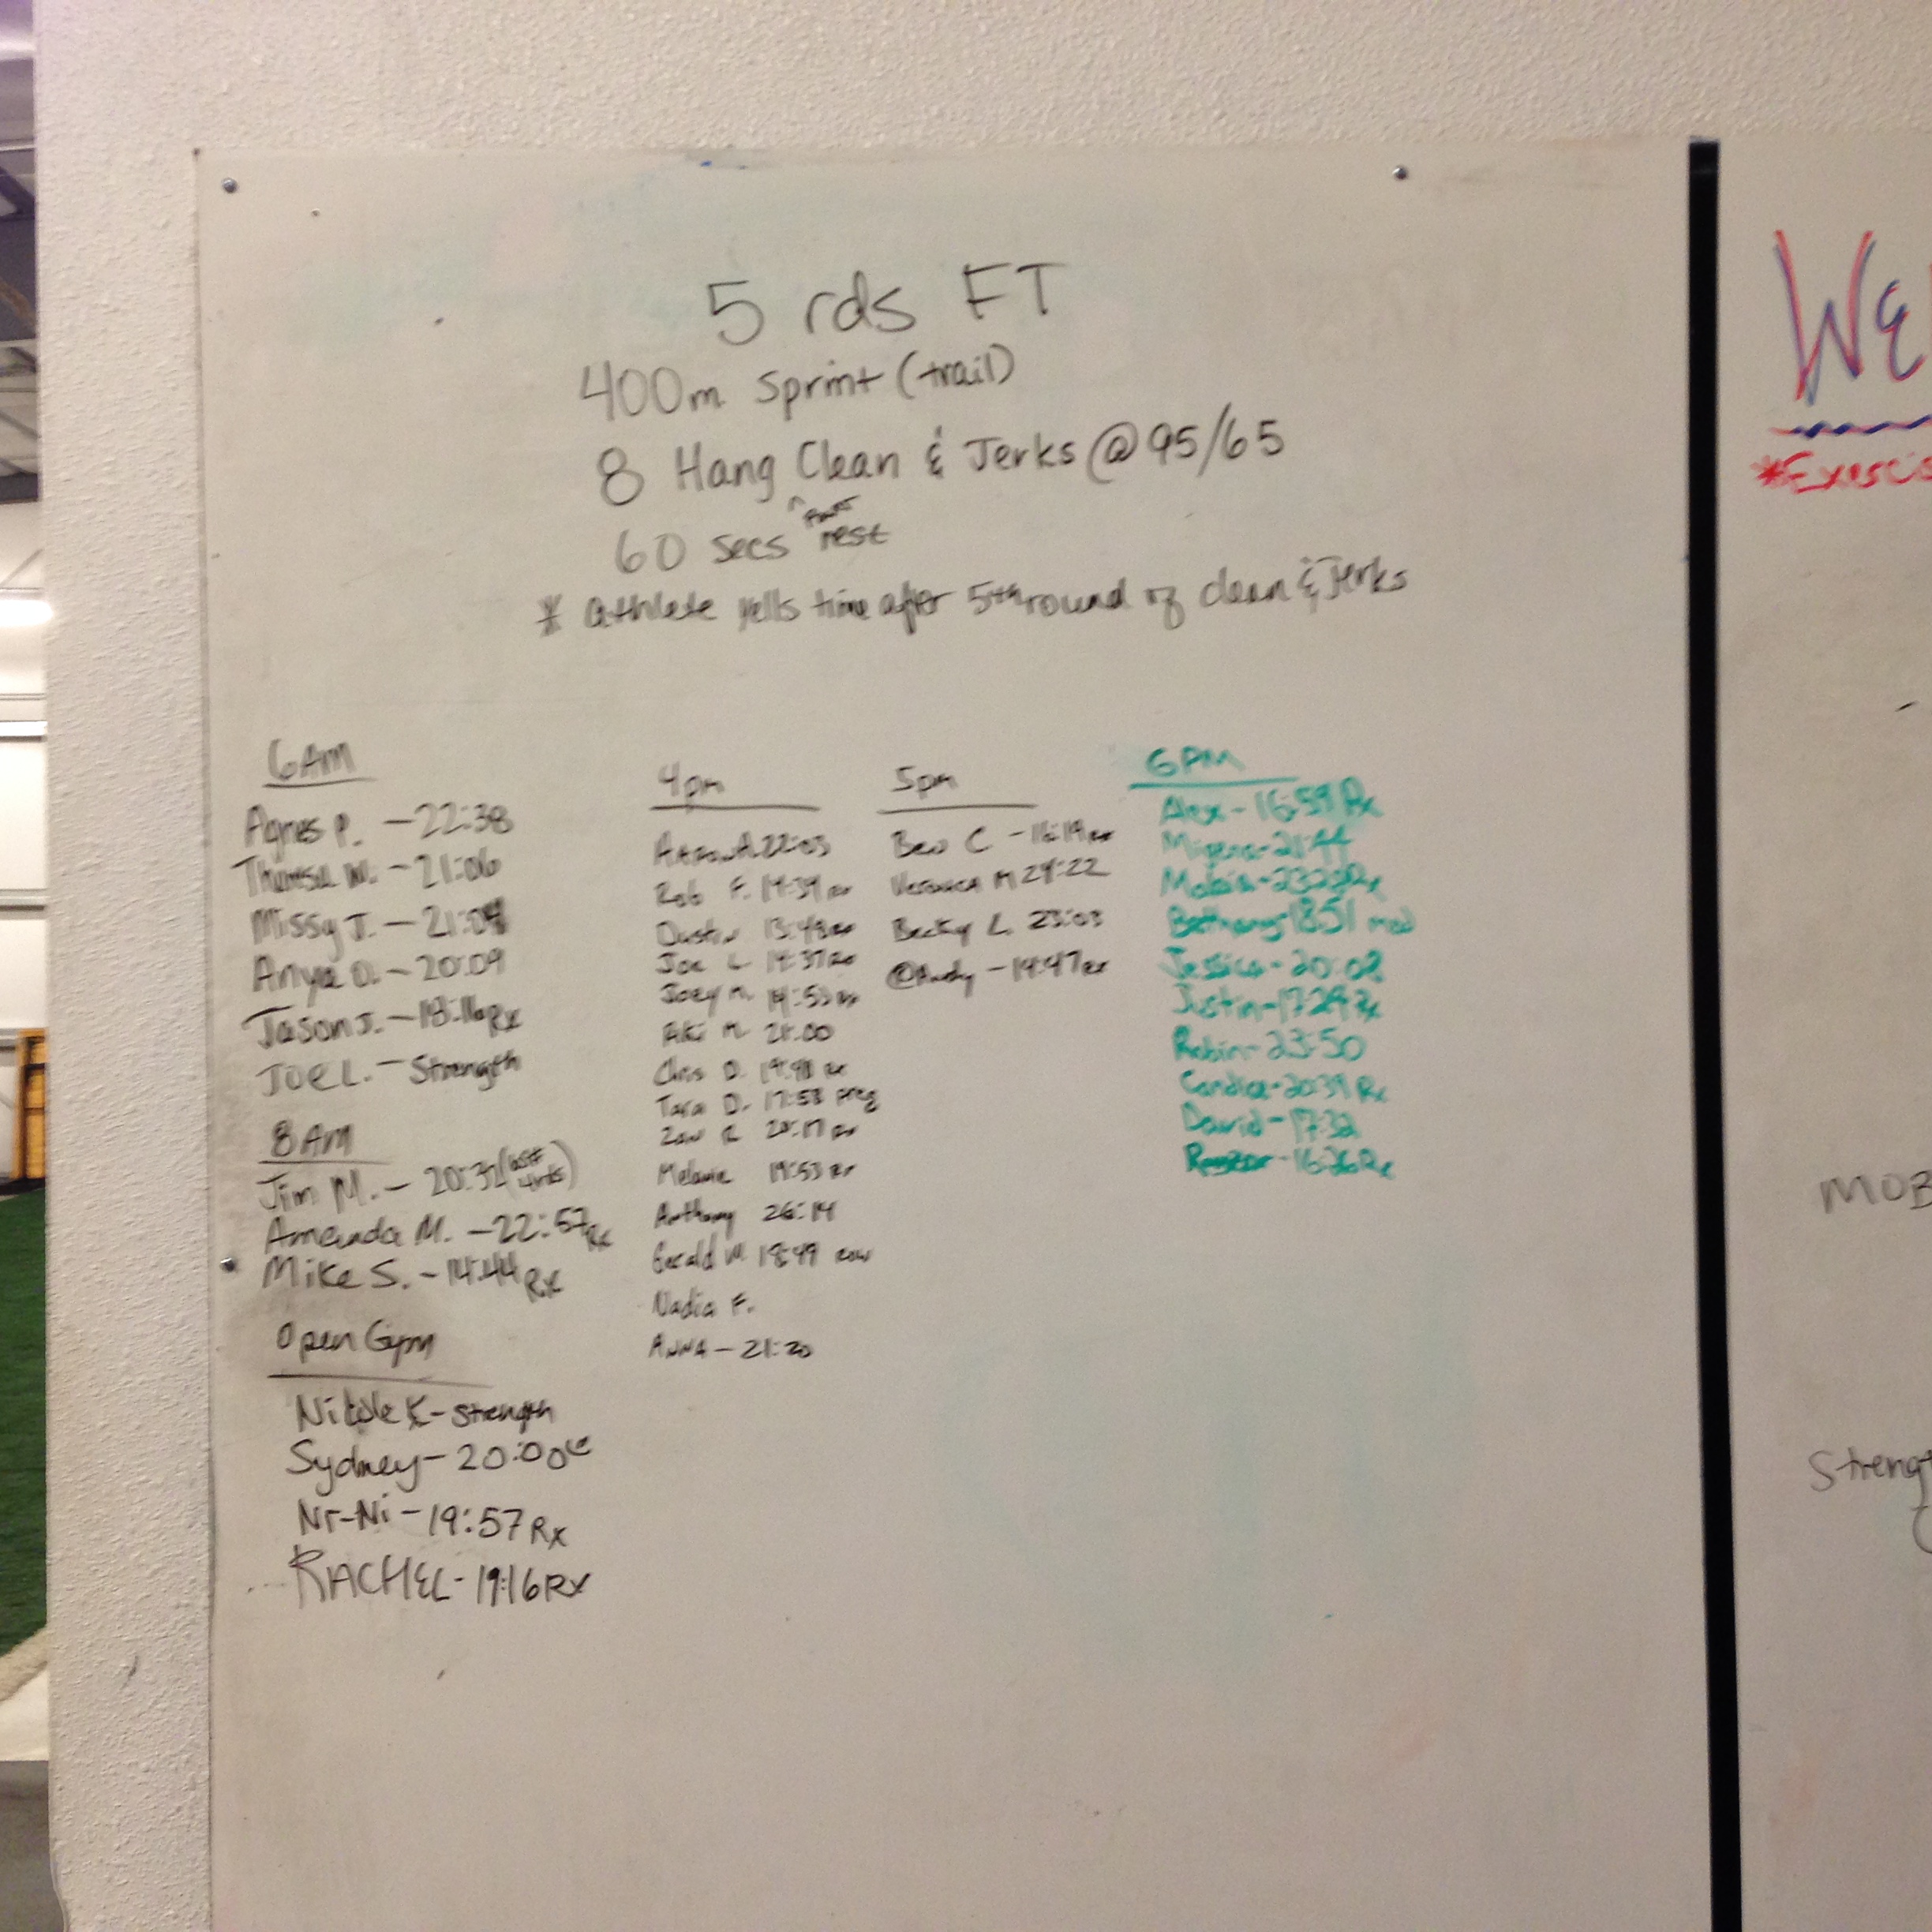 5 rds FT
400m Sprint (trail)
8 Hang Clean & Jerks @ 95/65
60 secs rest
* athlete yells time after 5th round of clean & Jerks
6Am
Agnes P. - 22:38
Theresa W. - 21:06
Missy J. - 21:08
Anya D. - 20:09
Jason J. - 18:16 Rx
JOE L. - Strength
8Am
Jim M. - 20:32
Amanda M. - 22:57 Rx
Mike S. - 14:44 Rx
Open Gym
Nicole K - Strength
Sydney - 20:00
Nr-Ni - 19:57 Rx
RACHEL - 19:16 RX
4pm
22:03
Rob F. 19:39 Rx
Dustin 13:48 Rx
Joe L 19:37 Rx
Joey M. 14:53 Rx
Aki M
Chris D. 19:48 Rx
Tara D. 17:58 preg
R Rx
Melanie 19:53 Rx
Anthony 26:14
Gerald W. 18:49 row
Nadia F.
ANNA - 21:20
5pm
Ben C - 16:19 Rx
Veronica M 24:22
Becky L. 23:03
@Andy - 14:47 Rx
6PM
Alex - 16:59 Rx
21:44
Rx
Bethany - 18:51 mod
Jessica - 20:08
Justin - 17:29 Rx
Robin - 23:50
Candice - 20:39 Rx
David - 17:32
16:26 Rx
WE
*Exerci
MOB
Streng